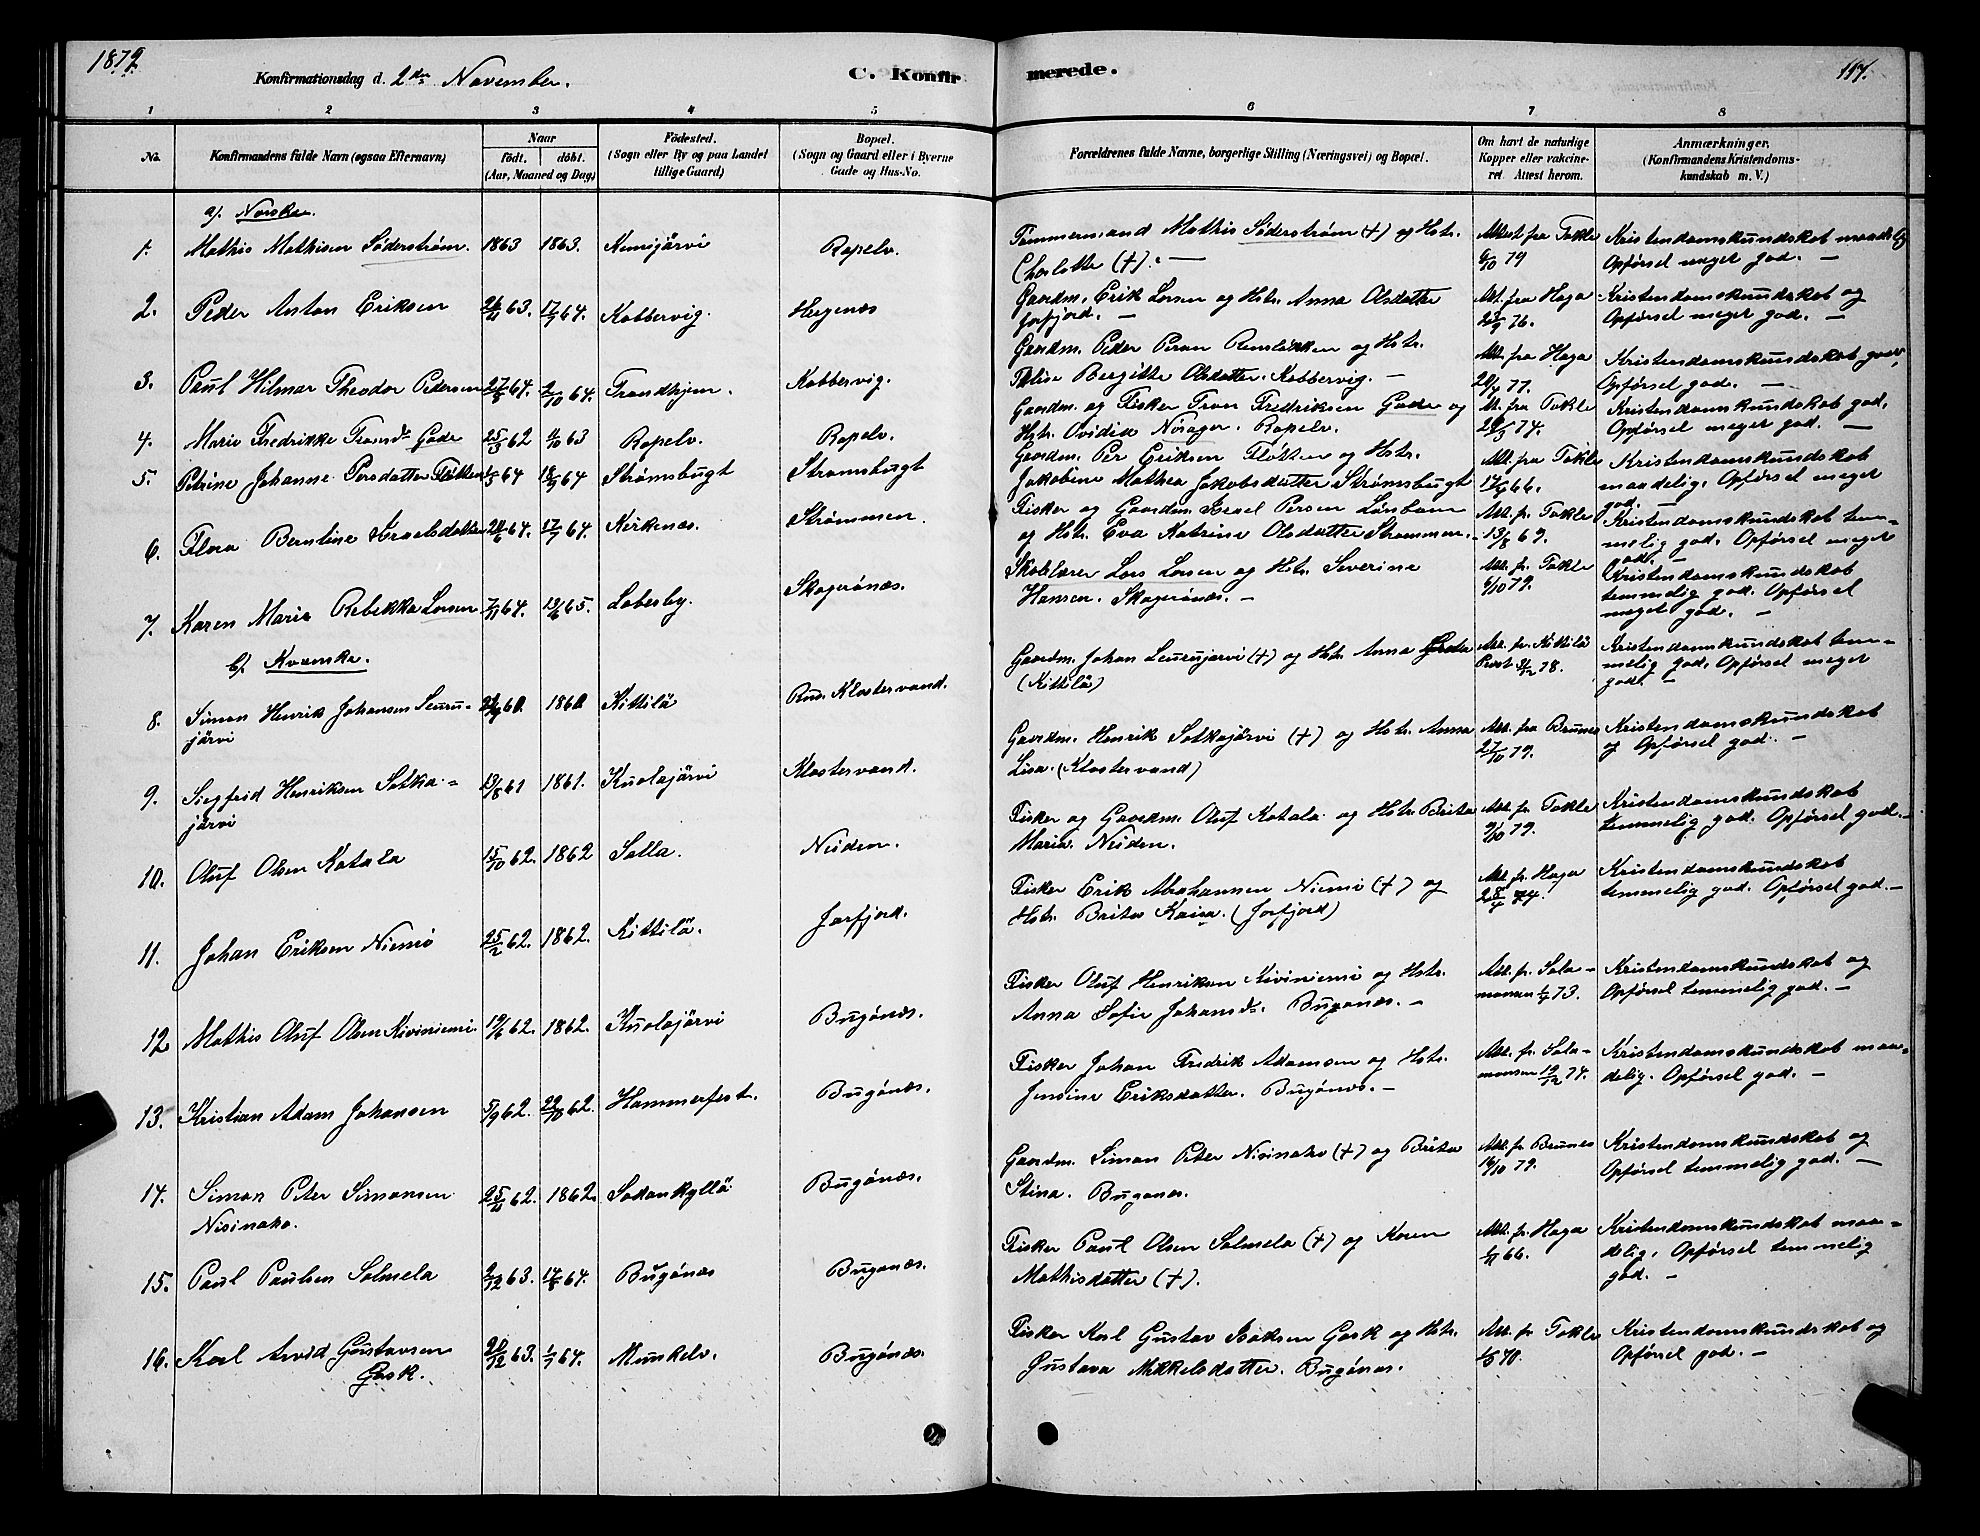 1879.
Konfirmationsdag d. 2den November.
C. Konfirmerede.
117.
1 2 3 4 5 6 7 8
No.
Konfirmandens fulde Navn (ogsaa Efternavn)
Naar
födt. döbt.
(Aar, Maaned og Dag)
Födested.
(Sogn eller By og paa Landet
tillige Gaard)
Bopæl.
(Sogn og Gaard eller i Byerne
Gade og Hus-No.
Forældrenes fulde Navne, borgerlige Stilling (Næringsvei) og Bopæl.
Om havt de naturlige
Kopper eller vakcine-
ret. Attest herom.
Anmærkninger,
(Konfirmandens Kristendoms-
kundskab m. V.)
a). Norske.
1. Mathis Mathisen Söderström. 1863 1863. Kemijärvi Ropelv. Tømmermand Mathis Söderström (+) og Hstr. Attest fra Tokle Kristendomskundskab maadelig
Charlotte (+). — 6/10 79 Opførsel meget god. —
2. Peder Anton Eriksen 26/11 63. 17/7 64. Kobbervig. Hegenæs Gaardm. Erik Larsen og Hstr. Anna Olsdatter Att. fra Haga Kristendomskundskab og
Jarfjord. — 76. Opførsel meget god. —
3. Paul Hilmar Theodor Pedersen 27/5 64. 2/10 64. Trondhjem. Kobbervig. Gaardm. Peder og Hstr. Att. fra Haga Kristendomskundskab god,
Bergitte Olsdatter. Kobbervig. — 77. Opførsel god. —
4. Marie Fredrikke Gade 25/3 62 63 Ropelv. Ropelv. Gaardm. og Fisker Tron Fredriksen Gade og Att. fra Tokle Kristendomskundskab god,
Hstr. Ovidia Norager. Ropelv. 74. Opførsel meget god. —
5. Petrine Johanne Persdatter Fløtten 64 18/9 64 Strømsbugt Strømsbugt Gaardm. Per Eriksen Fløtten og Hstr. Att. fra Tokle Kristendomskundskab
Jakobine Mathea Jakobsdatter Strømsbugt 66. maadelig. Opførsel meget
god. —
6. Flora Berntine Israelsdatter 64. 17/7 64. Kirkenæs. Strømmen. Fisker og Gaardm. Israel Persen og Hstr. Eva Katrine Olsdatter Strømmen. Att. fr. Tokle 13/8 69. Kristendomskundskab tem-
melig god. Opførsel meget
god. —
7. Karen Marie Rebekka Larsen 7/11 64. 65. Lebesby. Skogerönæs. Skolelærer Lars Larsen og Hstr. Severine Att. fr. Tokle Kristendomskundskab
Hansen. Skogerönæs. — 6/10 79. temmelig god. Opførsel
meget god. —
b). Kvænske.
8. Simon Henrik Johansen Seuru-
järvi 60. 1860 Kittilä Rus. Klostervand. Gaardm. Johan Seurujarvi (+) og Hstr. Anna Greta Att. fr. Kittilä Kristendomskundskab tem-
(Kittilä) Prost. 78. melig god. Opførsel meget
god. —
9. Siegfrid Henriksen Sotka-
järvi 13/8 61 1861. Kuolajärvi Klostervand. Gaardm. Henrik Sotkajärvi (+) og Hstr. Anna Att. fra Brunes Kristendomskundskab
Lisa. (Klostervand) 27/10 79. og Opførsel god. —
10. Oluf Olsen Kotala 15/10 62. 1862 Salla. Neiden. Fisker og Gaardm. Oluf Kotala og Hstr. Brita Att. fr. Tokle Kristendomskundskab
Maria. Neiden. 79. temmelig god. Opførsel god. —
11. Johan Eriksen Niemi 25/2 62. 1862. Kittilä. Jarfjord. Fisker Erik Abrahamsen Niemi (+) og Att. fr. Haga Kristendomskundskab
Hstr. Brita Kaisa. (Jarfjord) 28/4 74. temmelig god. Opførsel god. —
12 Mathis Oluf Olsen Kiviniemi 19/6 62. 1862. Kuolajärvi Bugönæs. Fisker Oluf Henriksen Kiviniemi og Hstr. Att. fr. Salo- Kristendomskundskab og
Anna Sofie Johansdr. Bugönæs. — monsen 73. Opførsel temmelig god. —
13. Kristian Adam Johansen 5/9 62. 22/10 62. Hammerfest. Bugönæs. Fisker Johan Fredrik Adamsen og Hstr. Att. fr. Salo- Kristendomskundskab maa-
Jensine Eriksdatter. Bugönæs. — monsen 19/12 74. delig. Opførsel god. —
14. Simon Peter Simonsen
Nisinaho. 25/11 62. 1862. Sodankyllä Bugönæs. Gaardm. Simon Peter Nisinaho (+) og Brita Att. fr. Brunes Kristendomskundskab og
Stina. Bugönæs. 14/10 79. Opførsel temmelig god. —
15. Paul Paulsen Salmela 2/12 63. 64. Bugönæs Bugönæs. Fisker Paul Olsen Salmela (+) og Karen Att. fr. Haga Kristendomskundskab maa-
Mathisdatter (+). 66. delig. Opførsel temmelig
god. —
16. Karl Arvid Gustavsen
Gask. 20/12 63. 1/7 64. Munkelv. Bugönæs. Fisker Karl Gustav Isaksen Gask og Hstr. Att. fr Tokle Kristendomskundskab og
Gustava Mikkelsdatter. Bugönæs. 70. Opførsel god. —